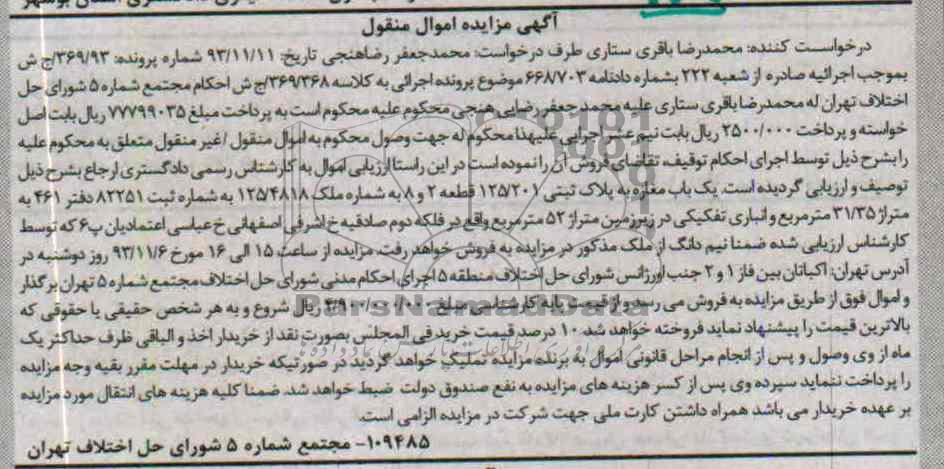 آگهی مزایده اموال منقول
درخواست کننده: محمدرضا باقری ستاری طرف درخواست: محمدجعفر رضاهنجی تاریخ: ۹۳/۱۱/۱۱ شماره پرونده: ۳۶۹/۹۳/ج ش
بموجب اجرائیه صادره از شعبه ۲۲۲ بشماره دادنامه ۶۶۸/۷۰۳ موضوع پرونده اجرائی به کلاسه ۳۶۹/۳۶۸/ج ش احکام مجتمع شماره ۵ شورای حل
اختلاف تهران له محمدرضا باقری ستاری علیه محمد جعفر رضایی هنجی محکوم علیه محکوم است به پرداخت مبلغ ۷۷۷۹۹۰۳۵ ریال بابت اصل
خواسته و پرداخت ۲۵۰۰/۰۰۰ ریال بابت نیم عشر اجرایی علیهذا محکوم له جهت وصول محکوم به اموال منقول /غیر منقول متعلق به محکوم علیه
را بشرح ذیل توسط اجرای احکام توقیف، تقاضای فروش آن را نموده است در این راستا ارزیابی اموال به کارشناس رسمی دادگستری ارجاع بشرح ذیل
توصیف و ارزیابی گردیده است. یک باب مغازه به پلاک ثبتی ۱۲۵/۲۰۱ قطعه ۲ و ۸ به شماره ملک ۱۲۵/۴۸۱۸ به شماره ثبت ۸۲۲۵۱ دفتر ۴۶۱ به
متراژ ۳۱/۳۵ مترمربع و انباری تفکیکی در زیرزمین متراژ ۵۲ مترمربع واقع در فلکه دوم صادقیه خ اشرفی اصفهانی خ عباسی اعتمادیان پ۶ که توسط
کارشناس ارزیابی شده ضمنا نیم دانگ از ملک مذکور در مزایده به فروش خواهد رفت. مزایده از ساعت ۱۵ الی ۱۶ مورخ ۹۳/۱۱/۶ روز دوشنبه در
آدرس تهران: اکباتان بین فاز ۱ و ۲ جنب اورژانس شورای حل اختلاف منطقه ۵ اجرای احکام مدنی شورای حل اختلاف مجتمع شماره ۵ تهران برگذار
و اموال فوق از طریق مزایده به فروش می رسد و از قیمت پایه کارشناسی مبلغ ریال شروع و به هر شخص حقیقی یا حقوقی که
بالاترین قیمت را پیشنهاد نماید فروخته خواهد شد. ۱۰ درصد قیمت خرید فی المجلس بصورت نقد از خریدار اخذ و الباقی ظرف حداکثر یک
ماه از وی وصول و پس از انجام مراحل قانونی اموال به برنده مزایده تملیک خواهد گردید در صورتیکه خریدار در مهلت مقرر بقیه وجه مزایده
را پرداخت ننماید سپرده وی پس از کسر هزینه های مزایده به نفع صندوق دولت ضبط خواهد شد. ضمنا کلیه هزینه های انتقال مورد مزایده
بر عهده خریدار می باشد همراه داشتن کارت ملی جهت شرکت در مزایده الزامی است.
۱۰۹۴۸۵- مجتمع شماره ۵ شورای حل اختلاف تهران